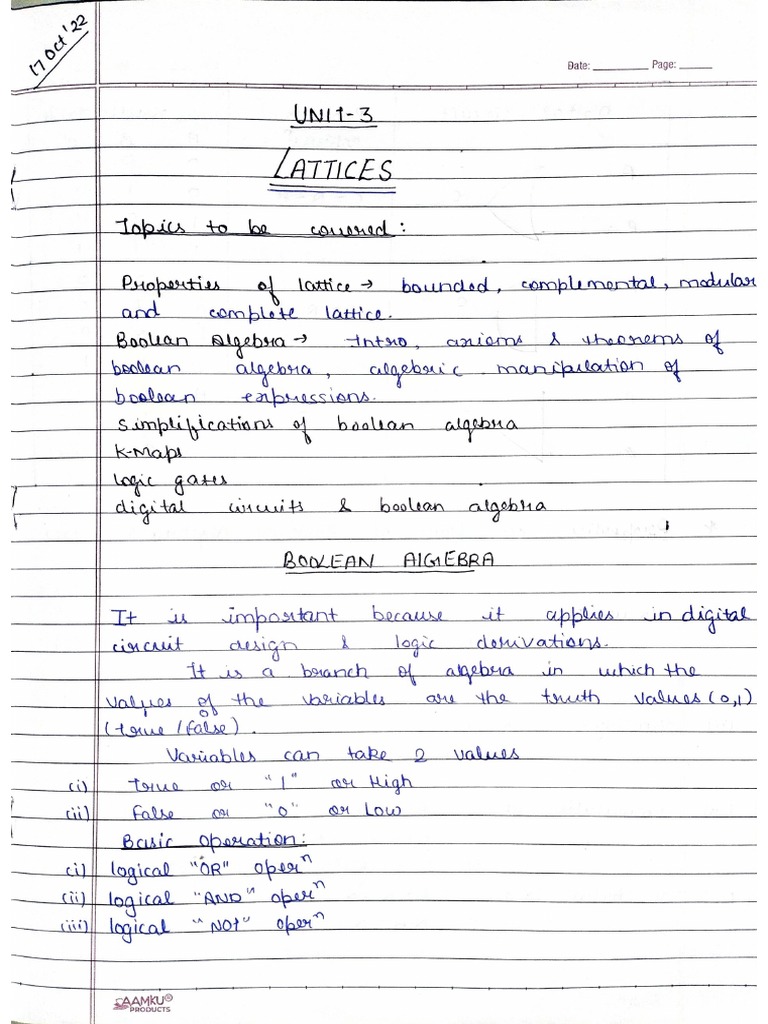 17 Oct '22
Date: ________ Page: _____
UNIT-3
LATTICES
Topics to be covered:
Properties of lattice → bounded, complemental, modular
and complete lattice.
Boolean Algebra → Intro, axioms & theorems of
boolean algebra, algebric manipulation of
boolean expressions.
Simplifications of boolean algebra
K-Maps
logic gates
digital circuits & boolean algebra
BOOLEAN ALGEBRA
It is important because it applies in digital
circuit design & logic derivations.
It is a branch of algebra in which the
values of the variables are the truth values (0,1)
(true/false).
Variables can take 2 values
(i) True or "1" or High
(ii) False or "0" or Low
Basic operation:
(i) logical "OR" operⁿ
(ii) logical "AND" operⁿ
(iii) logical "NOT" operⁿ
AAMKU®
PRODUCTS